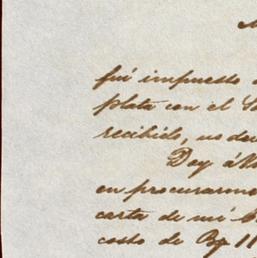 fué impuesto
plata con el
recibido, no
Doy á
en procurarme
carta de mi
costo de